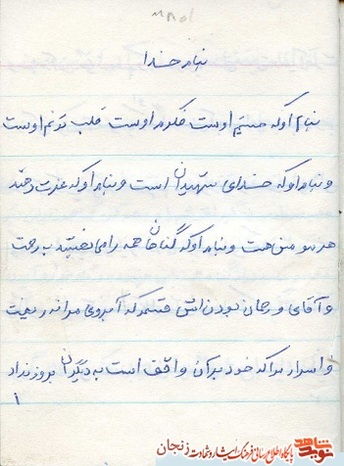 بنام خدا
بنام اوکه هستیم اوست فکرم اوست قلب تونم اوست
و بنام اوکه خدای شهیدان است و بنام اوکه عزت دهنده
هر مومنی هست و بنام اوکه گناهان همه را می بخشد به رحمت
و آقای و رحمان بودن اش قسم که آبروی مرا نه ریخت
و اسرار مرا که خود بر آن واقف است به دیگران بروز نداد
۱
شاهد
نوید
پایگاه اطلاع رسانی فرهنگ ایثار و شهادت زنجان